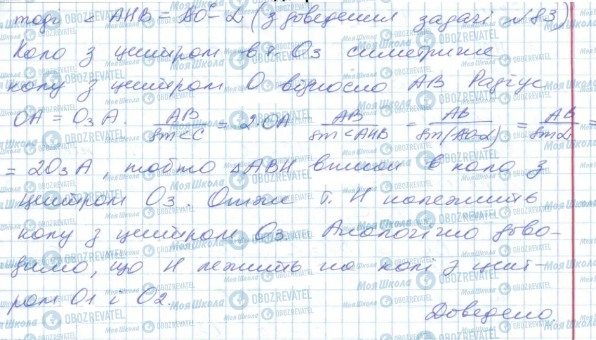 тоді ∠ AHB = 180° - α (з доведення задачі №83)
Коло з центром в т. O₃ симетричне
колу з центром O відносно AB Радіус
OA = O₃A. AB/sin∠C = 2OA AB/sin∠AHB = AB/sin(180-α) = AB/sinα =
= 2O₃A, тобто △ABH вписан в коло з
центром O₃. Отже т. H належить
колу з центром O₃. Аналогічно дово-
димо, що H лежить на колі з цент-
ром O₁ і O₂.
Доведено.